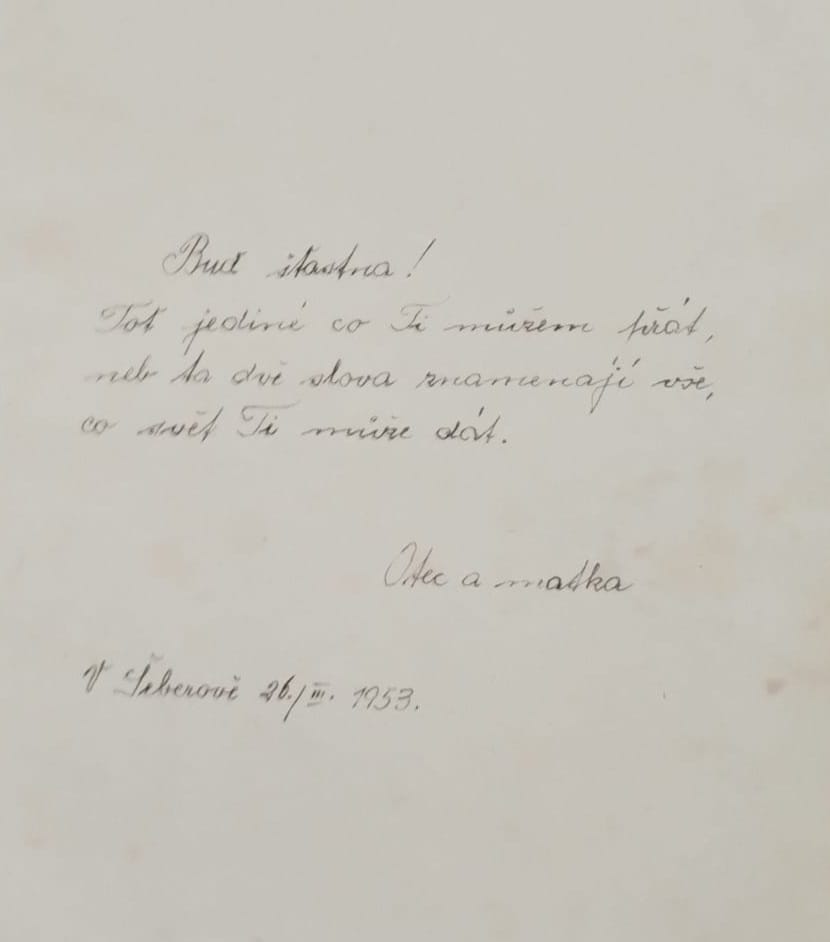 Buď šťastna!
Toť jediné co Ti můžem přát,
neb ta dvě slova znamenají vše,
co svět Ti může dát.
Otec a matka
V Šeberově 26./III. 1953.